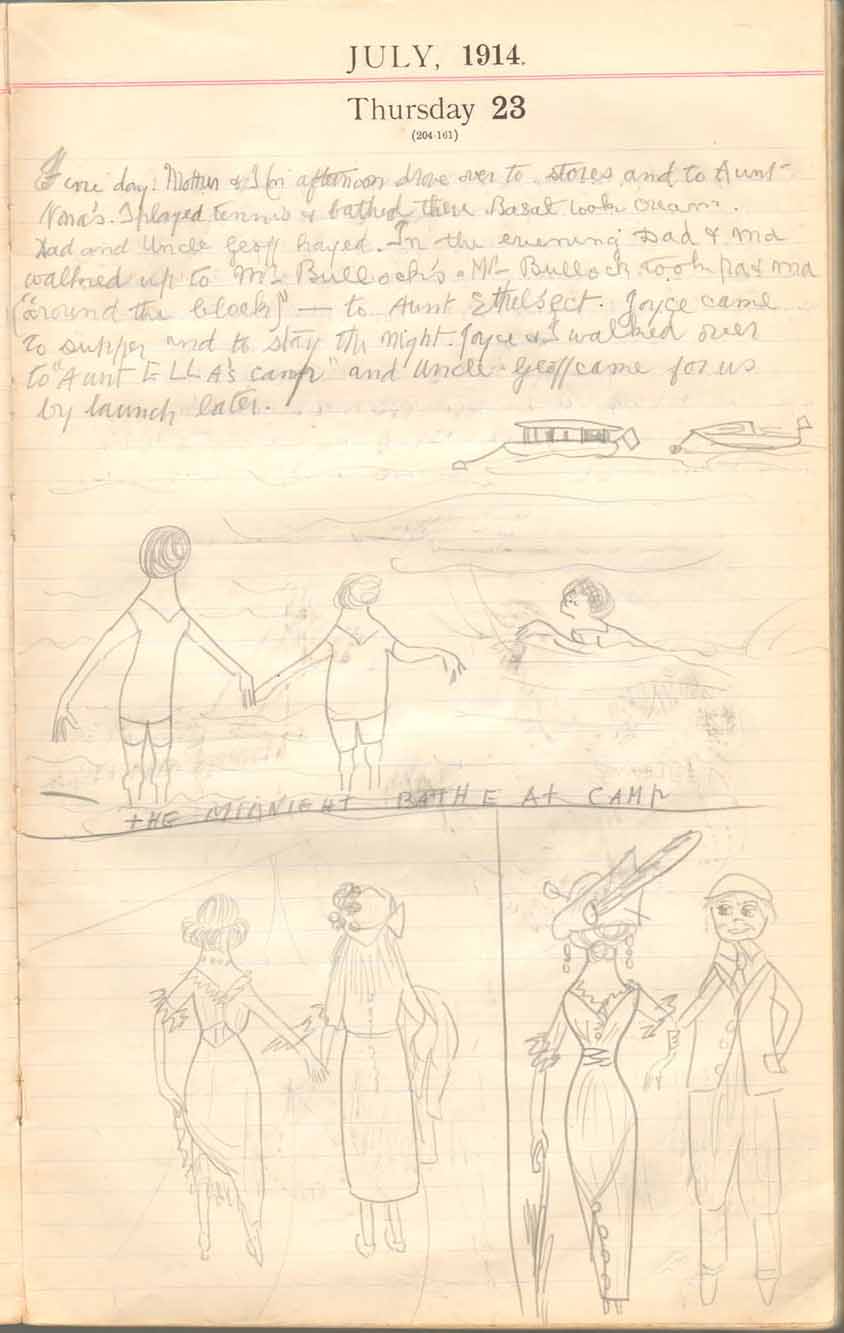 JULY, 1914.
Thursday 23
(204-161)
Fine day. Mother & I in afternoon drove over to stores and to Aunt
Nora's. I played tennis & bathed there Basal took cream.
Dad and Uncle Geoff hayed. In the evening Dad & ma
walked up to Mr Bullock's. Mr Bullock took pa & ma
("around the block") — to Aunt Ethels ect. Joyce came
to supper and to stay the night. Joyce & I walked over
to "Aunt ELLA's camp" and Uncle Geoff came for us
by launch later.
THE MIDNIGHT BATHE AT CAMP